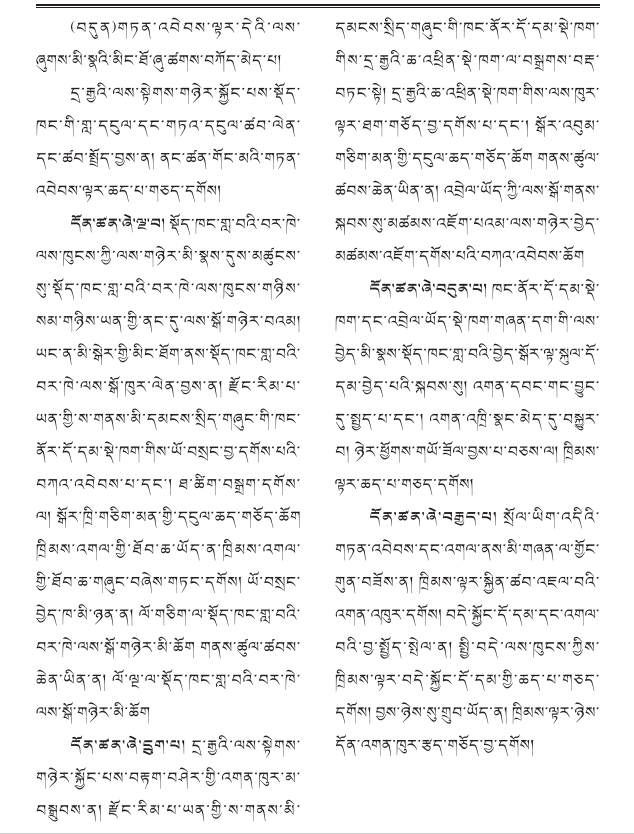 (བདུན)གཏན་འབེབས་ལྟར་དེའི་ལས་
ཞུགས་མི་སྣའི་མིང་ཐོ་ཞུ་ཚགས་བཀོད་མེད་པ།
དྲ་རྒྱའི་ལས་སྟེགས་གཉེར་སྐྱོང་པས་སྡོད་
ཁང་གི་གླ་དངུལ་དང་གཏའ་དངུལ་ཚབ་ལེན་
དང་ཚབ་སྤྲོད་བྱས་ན། ནང་ཚན་གོང་མའི་གཏན་
འབེབས་ལྟར་ཆད་པ་གཅད་དགོས།
དོན་ཚན་ཞེ་ལྔ་བ། སྡོད་ཁང་གླ་བའི་བར་ཁེ་
ལས་ཁུངས་ཀྱི་ལས་གཉེར་མི་སྣས་དུས་མཚུངས་
སུ་སྡོད་ཁང་གླ་བའི་བར་ཁེ་ལས་ཁུངས་གཉིས་
སམ་གཉིས་ཡན་གྱི་ནང་དུ་ལས་སྒོ་གཉེར་བའམ།
ཡང་ན་མི་སྒེར་གྱི་མིང་ཐོག་ནས་སྡོད་ཁང་གླ་བའི་
བར་ཁེ་ལས་སྒོ་ཁུར་ལེན་བྱས་ན། རྫོང་རིམ་པ་
ཡན་གྱི་ས་གནས་མི་དམངས་སྲིད་གཞུང་གི་ཁང་
ནོར་དོ་དམ་སྡེ་ཁག་གིས་ཡོ་བསྲང་བྱ་དགོས་པའི་
བཀའ་འབེབས་པ་དང་། ཐ་ཚིག་བསྒྲག་དགོས་
ལ། སྒོར་ཁྲི་གཅིག་མན་གྱི་དངུལ་ཆད་གཅོད་ཆོག
ཁྲིམས་འགལ་གྱི་ཐོབ་ཆ་ཡོད་ན་ཁྲིམས་འགལ་
གྱི་ཐོབ་ཆ་གཞུང་བཞེས་གཏང་དགོས། ཡོ་བསྲང་
བྱེད་ཁ་མི་ཉན་ན། ལོ་གཅིག་ལ་སྡོད་ཁང་གླ་བའི་
བར་ཁེ་ལས་སྒོ་གཉེར་མི་ཆོག གནས་ཚུལ་ཚབས་
ཆེན་ཡིན་ན། ལོ་ལྔ་ལ་སྡོད་ཁང་གླ་བའི་བར་ཁེ་
ལས་སྒོ་གཉེར་མི་ཆོག
དོན་ཚན་ཞེ་དྲུག་པ། དྲ་རྒྱའི་ལས་སྟེགས་
གཉེར་སྐྱོང་པས་བརྟག་བཤེར་གྱི་འགན་ཁུར་མ་
བསྒྲུབས་ན། རྫོང་རིམ་པ་ཡན་གྱི་ས་གནས་མི་
དམངས་སྲིད་གཞུང་གི་ཁང་ནོར་དོ་དམ་སྡེ་ཁག་
གིས་དྲ་རྒྱའི་ཆ་འཕྲིན་སྡེ་ཁག་ལ་བསྒྲགས་བརྡ་
བཏང་སྟེ། དྲ་རྒྱའི་ཆ་འཕྲིན་སྡེ་ཁག་གིས་ལས་ཁུར་
ལྟར་ཐག་གཅོད་བྱ་དགོས་པ་དང་། སྒོར་འབུམ་
གཅིག་མན་གྱི་དངུལ་ཆད་གཅོད་ཆོག གནས་ཚུལ་
ཚབས་ཆེན་ཡིན་ན། འབྲེལ་ཡོད་ཀྱི་ལས་སྒོ་གནས་
སྐབས་སུ་མཚམས་འཇོག་པའམ་ལས་གཉེར་བྱེད་
མཚམས་འཇོག་དགོས་པའི་བཀའ་འབེབས་ཆོག
དོན་ཚན་ཞེ་བདུན་པ། ཁང་ནོར་དོ་དམ་སྡེ་
ཁག་དང་འབྲེལ་ཡོད་སྡེ་ཁག་གཞན་དག་གི་ལས་
བྱེད་མི་སྣས་སྡོད་ཁང་གླ་བའི་བྱེད་སྒོར་ལྟ་སྐུལ་དོ་
དམ་བྱེད་པའི་སྐབས་སུ། འགན་དབང་གང་བྱུང་
དུ་སྤྱད་པ་དང་། འགན་འཁྲི་སྣང་མེད་དུ་བསྐྱུར་
བ། ཉེར་ཕྱོགས་གཡོ་ཟོལ་བྱས་པ་བཅས་ལ། ཁྲིམས་
ལྟར་ཆད་པ་གཅད་དགོས།
དོན་ཚན་ཞེ་བརྒྱད་པ། སྲོལ་ཡིག་འདིའི་
གཏན་འབེབས་དང་འགལ་ནས་མི་གཞན་ལ་གྱོང་
གུན་བཟོས་ན། ཁྲིམས་ལྟར་སྐྱིན་ཚབ་འཇལ་བའི་
འགན་འཁུར་དགོས། བདེ་སྐྱོང་དོ་དམ་དང་འགལ་
བའི་བྱ་སྤྱོད་སྤེལ་ན། སྤྱི་བདེ་ལས་ཁུངས་ཀྱིས་
ཁྲིམས་ལྟར་བདེ་སྐྱོང་དོ་དམ་གྱི་ཆད་པ་གཅད་
དགོས། བྱས་ཉེས་སུ་གྲུབ་ཡོད་ན། ཁྲིམས་ལྟར་ཉེས་
དོན་འགན་ཁུར་རྩད་གཅོད་བྱ་དགོས།